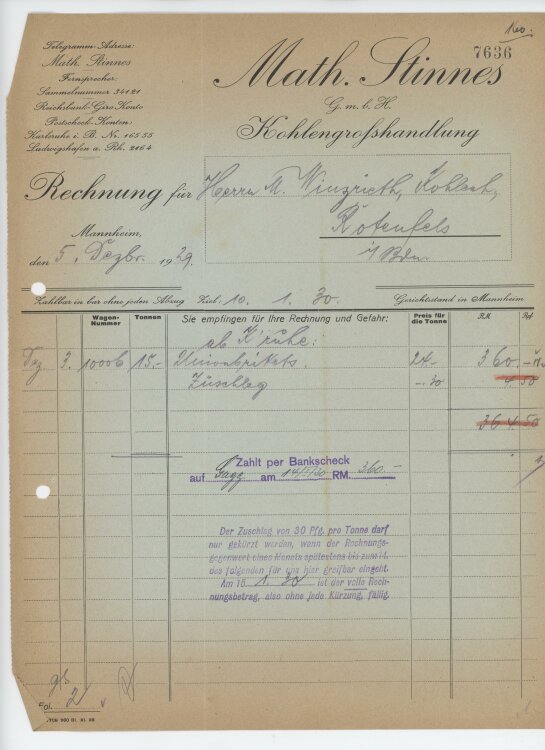 7636
Telegramm-Adresse:
Math. Stinnes
Fernsprecher:
Sammelnummer 34121
Reichsbank-Giro Konto
Postscheck-Konten:
Karlsruhe i. B. No. 16555
Ludwigshafen a. Rh. 2164
Math. Stinnes
G. m. b. H.
Kohlengroßhandlung
Rechnung für Herrn M. Winzrieth, Kohlenh.,
Rotenfels
i/Bdn.
Mannheim,
den 5. Dezbr. 1929.
Zahlbar in bar ohne jeden Abzug Ziel: 10. 1. 30. Gerichtsstand in Mannheim
Wagen-Nummer Tonnen Sie empfingen für Ihre Rechnung und Gefahr: Preis für die Tonne RM. Pf.
ab K'ruhe:
Dez. 3. 10006 15.- Unionbrikets. 24.- 360.-
Zuschlag -.30 4 50
364.50
Zahlt per Bankscheck
auf Gagg. am RM. 360.-
Der Zuschlag von 30 Pfg. pro Tonne darf
nur gekürzt werden, wenn der Rechnungs-
gegenwert eines Monats spätestens bis zum 14.
des folgenden für uns hier greifbar eingeht.
Am 15. 1. 30 ist der volle Rech-
nungsbetrag, also ohne jede Kürzung, fällig.
Fol. 2